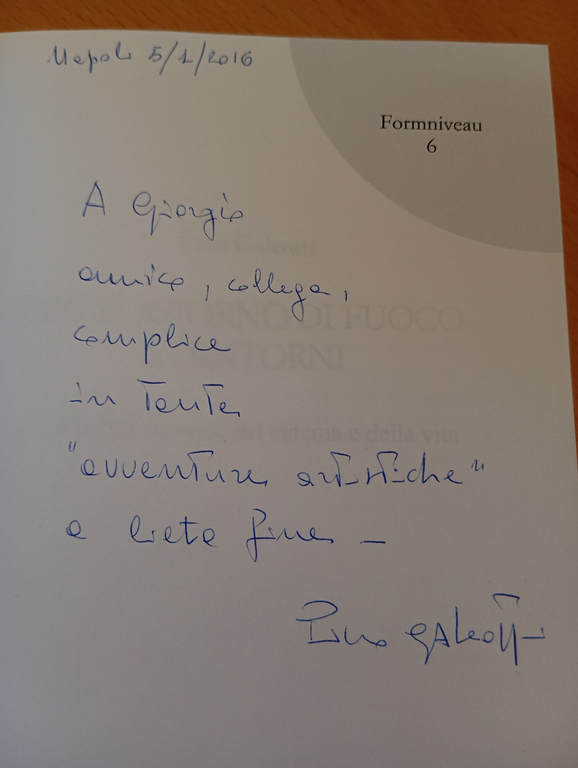 Napoli 5/1/2016
Formniveau
6
A Giorgio
amico, collega,
complice
in tante
"avventure artistiche"
a lieto fine -
Pino Galeotti